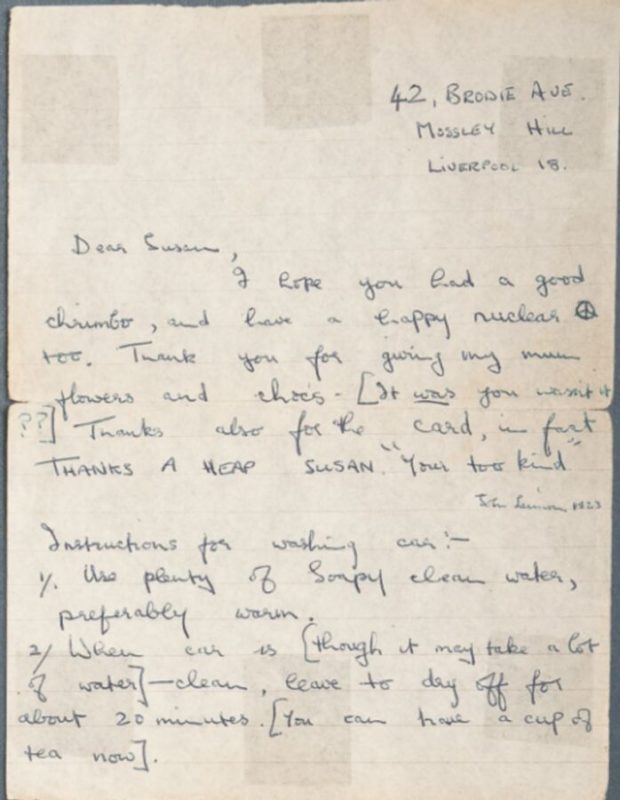 42, BRODIE AVE.
MOSSLEY HILL
LIVERPOOL 18.
Dear Susan,
I hope you had a good
chrimbo, and have a happy nuclear ☮
too. Thank you for giving my mum
flowers and chocs - [It was you wasn't it
??] Thanks also for the card, in fact
THANKS A HEAP SUSAN. "Your too kind"
John Lennon 1823
Instructions for washing car:-
1/. Use plenty of Soapy clean water,
preferably warm.
2/ When car is [though it may take a lot
of water] - clean, leave to dry off for
about 20 minutes. [You can have a cup of
tea now].